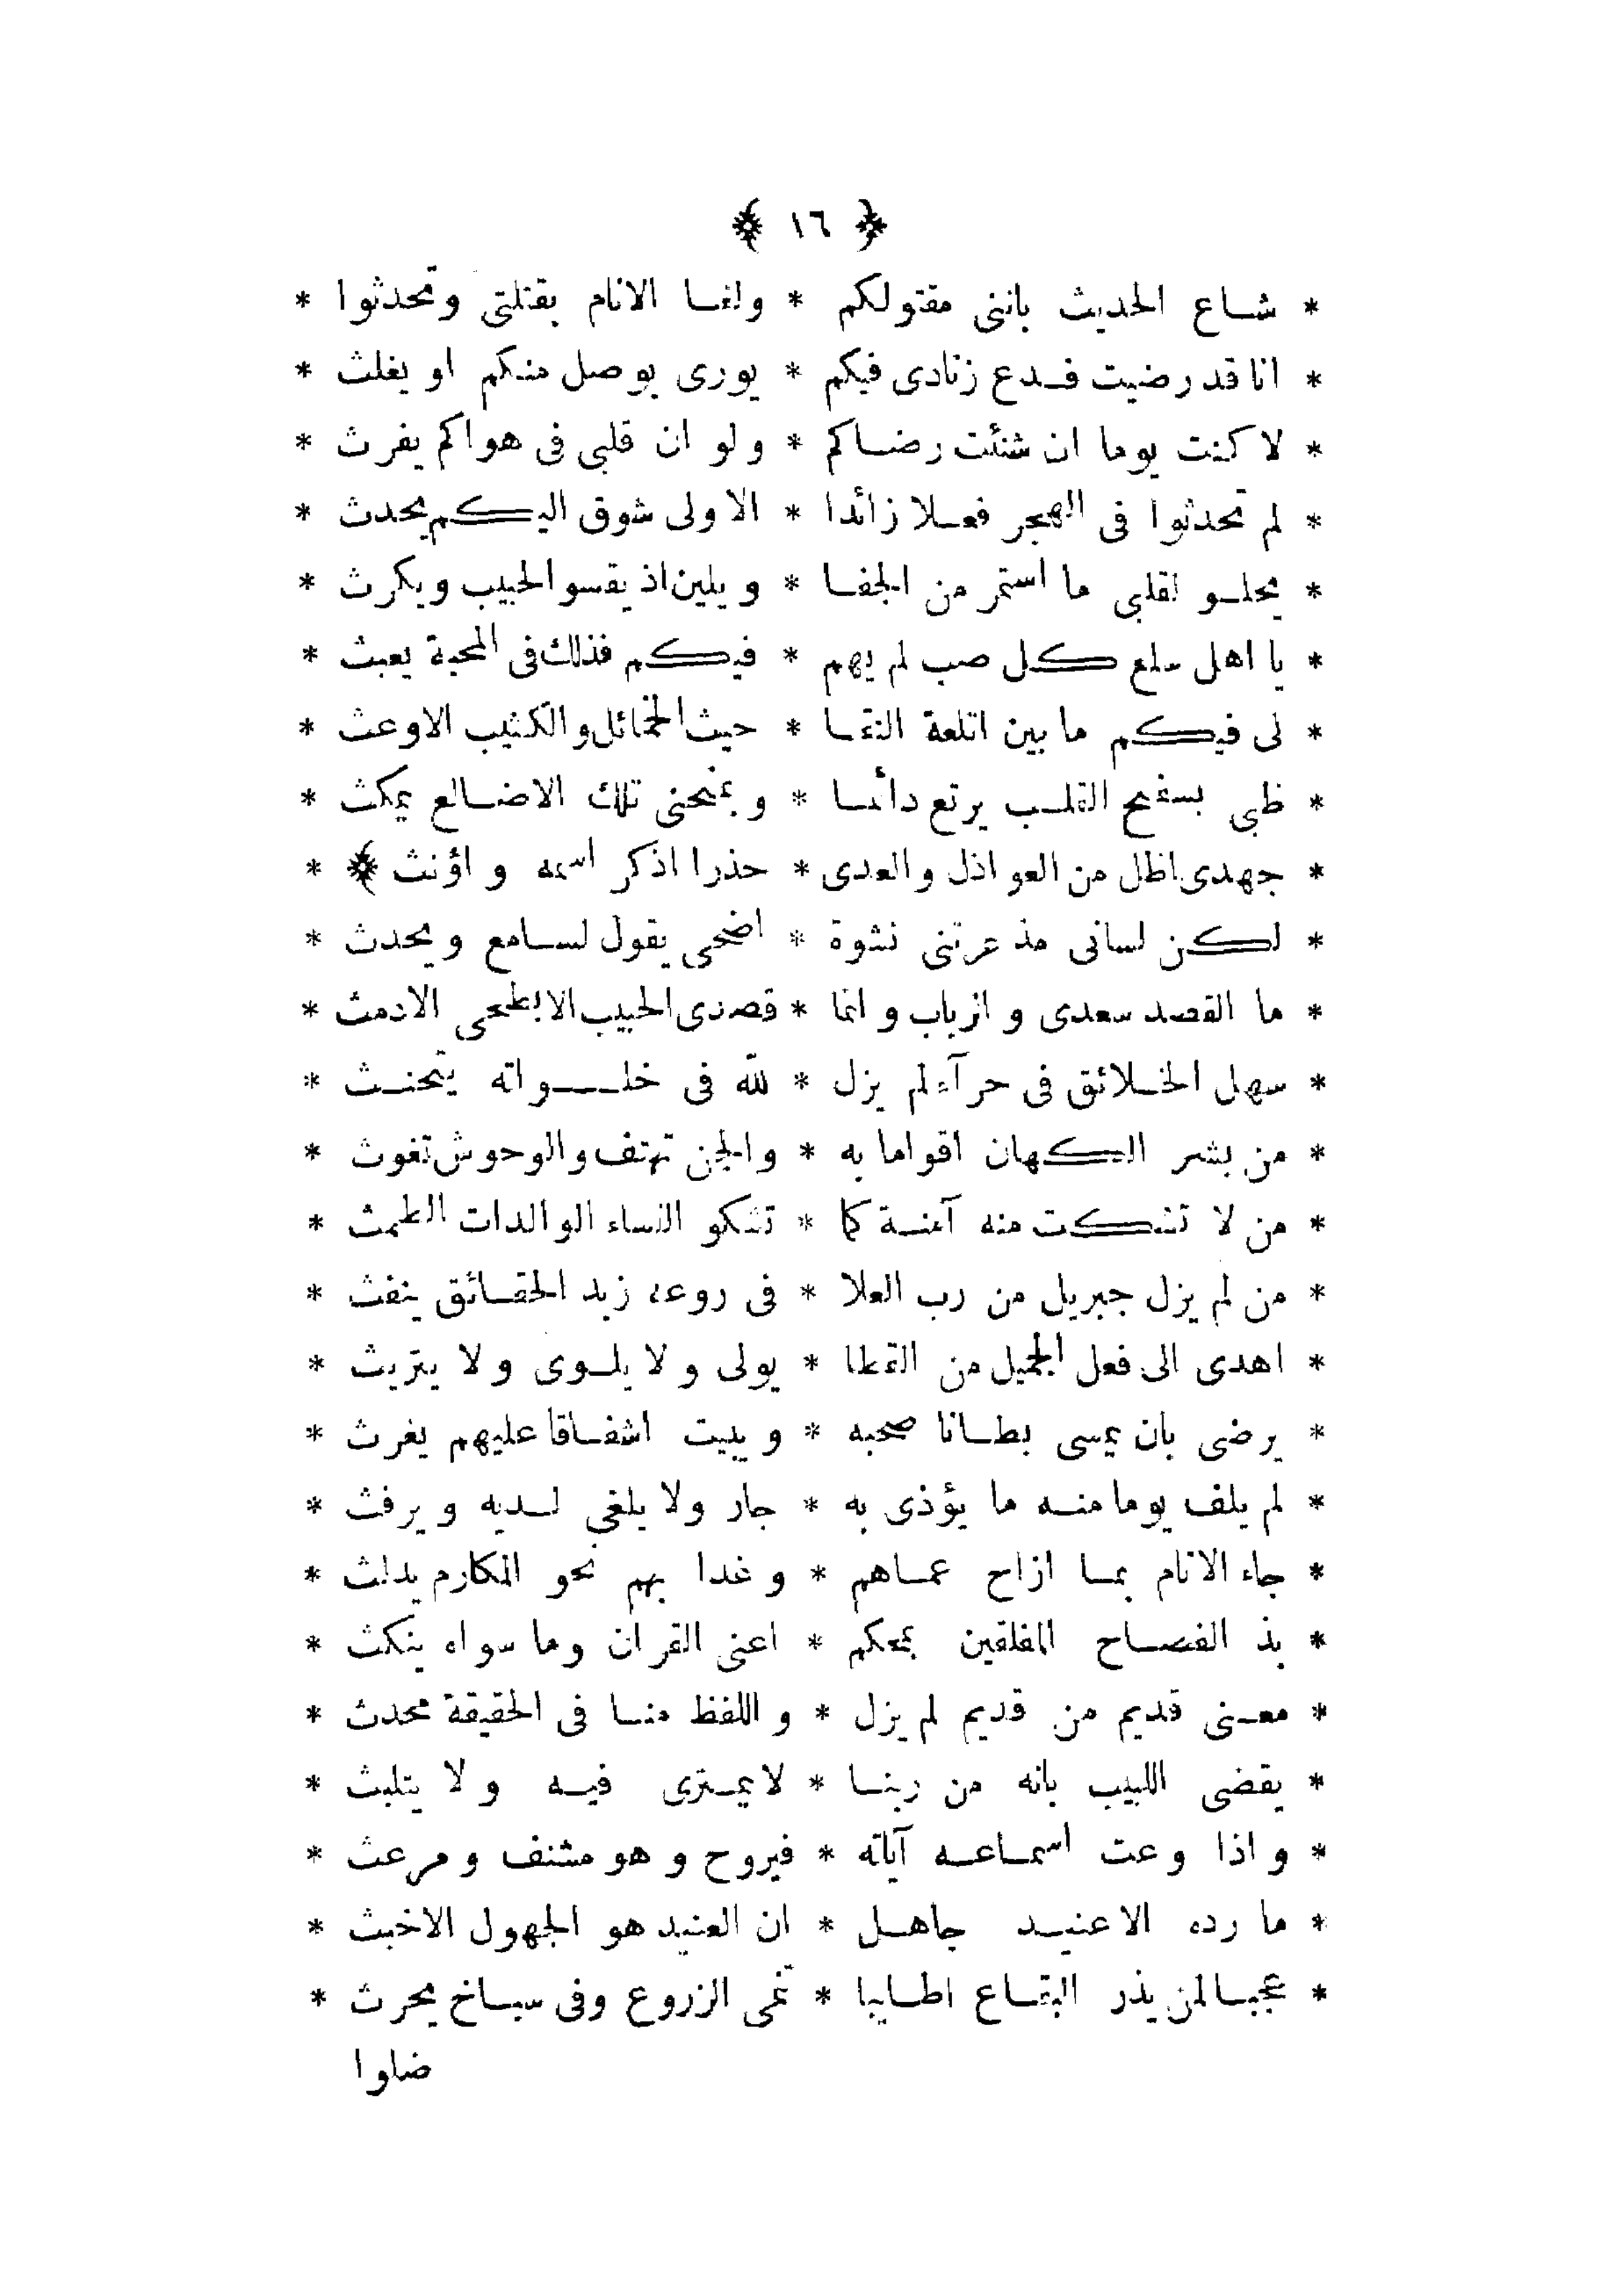 ﴿ ١٦ ﴾
* شاع الحديث باننى مقتولكم * ولغا الانام بقتلتى وتحدثوا *
* انا قد رضيت فدع زنادى فيكم * يورى بوصل منكم او يغلث *
* لا كنت يوما ان شنئت رضاكم * ولو ان قلبى فى هواكم يفرث *
* لم تحدثوا فى الهجر فعلا زائدا * الا ولى شوق اليكم يحدث *
* يحلو لقلبى ما استمر من الجفا * ويلين اذ يقسو الحبيب ويكرث *
* يا اهل سلع كل صب لم يهم * فيكم فذلك فى المحبة يعبث *
* لى فيكم ما بين اتلعة النقا * حيث الخمائل والكثيب الاوعث *
* ظبى بسفح القلب يرتع دائما * وبمنحنى تلك الاضالع يمكث *
* جهدى اظل من العواذل والعدى * حذرا اذكر اسمه واؤنث ﴾ *
* لكن لسانى مذ عرتنى نشوة * اضحى يقول لسامع ويحدث *
* ما القصد سعدى والرباب وانما * قصدى الحبيب الابطحى الادمث *
* سهل الخلائق فى حرآء لم يزل * لله فى خلواته يتحنث *
* من بشر الكهان اقواما به * والجن تهتف والوحوش تغوث *
* من لا تشكت منه آمنة كما * تشكو النساء الوالدات الطمث *
* من لم يزل جبريل من رب العلا * فى روعه زبد الحقائق ينفث *
* اهدى الى فعل الجميل من القطا * يولى ولا يلوى ولا يتريث *
* يرضى بان يمسى بطانا صحبه * ويبيت اشفاقا عليهم يغرث *
* لم يلف يوما منه ما يؤذى به * جار ولا يلغى لديه ويرفث *
* جاء الانام بما ازاح عماهم * وغدا بهم نحو المكارم يدلث *
* بذ الفصاح المفلقين بمحكم * اعنى القران وما سواه ينكث *
* معنى قديم من قديم لم يزل * واللفظ منا فى الحقيقة محدث *
* يقضى اللبيب بانه من ربنا * لا يمترى فيه ولا يتلبث *
* واذا وعت اسماعه آياته * فيروح وهو مشنف ومرعث *
* ما رده الا عنيد جاهل * ان العنيد هو الجهول الاخبث *
* عجبا لمن يذر البقاع اطايبا * تنمى الزروع وفى سباخ يحرث *
ضلوا